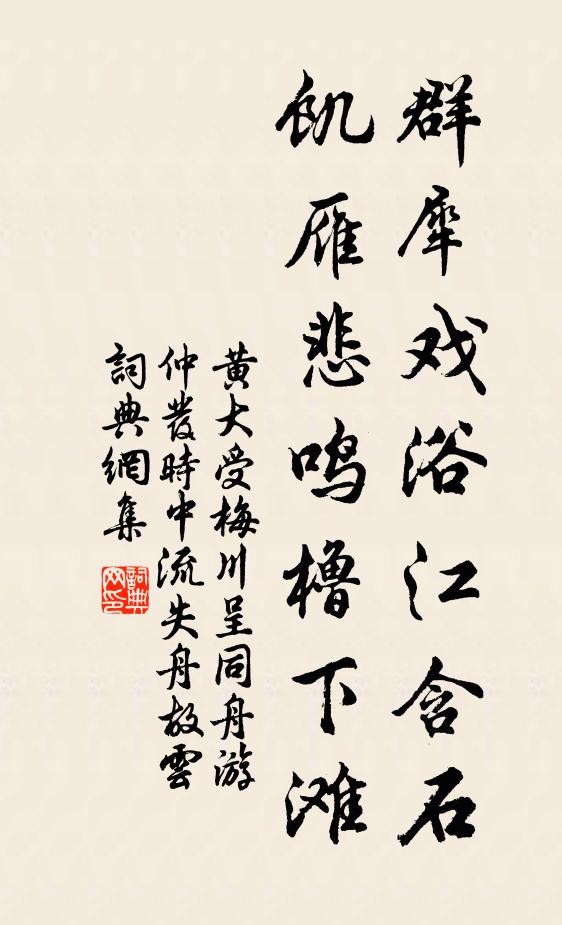 群犀戏浴江含石
飢雁悲鸣橹下滩
黄大受梅川呈同舟游
仲發時中流失舟故雲
詞典網集
詞典網印